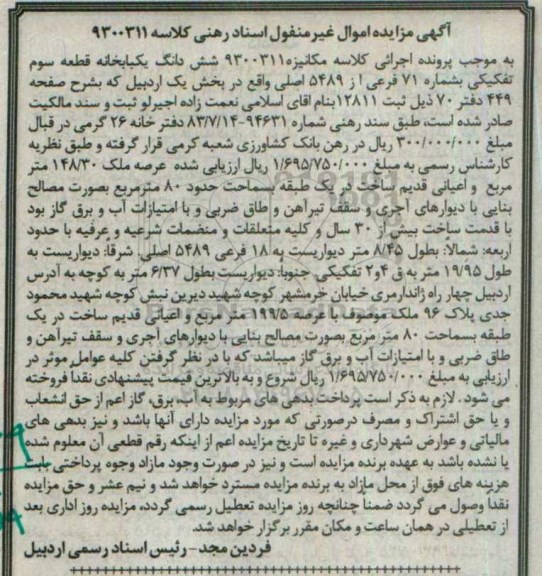 آگهی مزایده اموال غیرمنقول اسناد رهنی کلاسه ۹۳۰۰۳۱۱
به موجب پرونده اجرائی کلاسه مکانیزه۹۳۰۰۳۱۱ شش دانگ یکبابخانه قطعه سوم
تفکیکی بشماره ۷۱ فرعی از ۵۴۸۹ اصلی واقع در بخش یک اردبیل که بشرح صفحه
۴۴۹ دفتر ۷۰ ذیل ثبت ۱۲۸۱۱بنام اقای اسلامی نعمت زاده اجیرلو ثبت و سند مالکیت
صادر شده است، طبق سند رهنی شماره ۹۴۶۳۱-۸۳/۷/۱۴ دفتر خانه ۲۶ گرمی در قبال
مبلغ ۳۰۰/۰۰۰/۰۰۰ ریال در رهن بانک کشاورزی شعبه گرمی قرار گرفته و طبق نظریه
کارشناس رسمی به مبلغ ۱/۶۹۵/۷۵۰/۰۰۰ ریال ارزیابی شده عرصه ملک ۱۴۸/۳۰ متر
مربع و اعیانی قدیم ساخت در یک طبقه بمساحت حدود ۸۰ مترمربع بصورت مصالح
بنایی با دیوارهای آجری و سقف تیرآهن و طاق ضربی و با امتیازات آب و برق گاز بود
با قدمت ساخت بیش از ۳۰ سال و کلیه متعلقات و منضمات شرعیه و عرفیه با حدود
اربعه: شمالا: بطول ۸/۴۵ متر دیواریست به ۱۸ فرعی ۵۴۸۹ اصلی. شرقاً: دیواریست به
طول ۱۹/۹۵ متر به ق ۴و۲ تفکیکی جنوباً: دیواریست بطول ۶/۳۷ متر به کوچه به آدرس
اردبیل چهار راه ژاندارمری خیابان خرمشهر کوچه شهید دیرین نبش کوچه شهید محمود
جدی پلاک ۹۶ ملک موصوف با عرصه ۱۹۹/۵ متر مربع و اعیانی قدیم ساخت در یک
طبقه بمساحت ۸۰ متر مربع بصورت مصالح بنایی با دیوارهای آجری و سقف تیرآهن و
طاق ضربی و با امتیازات آب و برق گاز میباشد که با در نظر گرفتن کلیه عوامل موثر در
ارزیابی به مبلغ ۱/۶۹۵/۷۵۰/۰۰۰ ریال شروع و به بالاترین قیمت پیشنهادی نقداً فروخته
می شود. لازم به ذکر است پرداخت بدهی های مربوط به آب، برق، گاز اعم از حق انشعاب
و یا حق اشتراک و مصرف درصورتی که مورد مزایده دارای آنها باشد و نیز بدهی های
مالیاتی و عوارض شهرداری و غیره تا تاریخ مزایده اعم از اینکه رقم قطعی آن معلوم شده
یا نشده باشد به عهده برنده مزایده است و نیز در صورت وجود مازاد وجوه پرداختی بابت
هزینه های فوق از محل مازاد به برنده مزایده مسترد خواهد شد و نیم عشر و حق مزایده
نقداً وصول می گردد ضمناً چنانچه روز مزایده تعطیل رسمی گردد، مزایده روز اداری بعد
از تعطیلی در همان ساعت و مکان مقرر برگزار خواهد شد.
فردین مجد - رئیس اسناد رسمی اردبیل